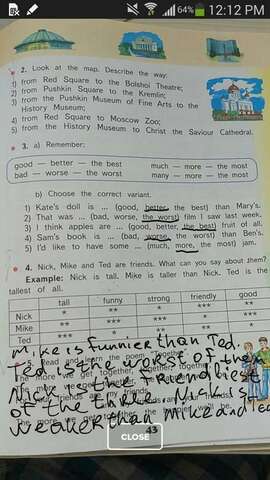 64% 12:12 PM
2. Look at the map. Describe the way:
1) from Red Square to the Bolshoi Theatre;
2) from Pushkin Square to the Kremlin;
3) from the Pushkin Museum of Fine Arts to the
History Museum;
4) from Red Square to Moscow Zoo;
5) from the History Museum to Christ the Saviour Cathedral.
3. a) Remember:
good — better — the best much — more — the most
bad — worse — the worst many — more — the most
b) Choose the correct variant.
1) Kate's doll is ... (good, better, the best) than Mary's.
2) That was ... (bad, worse, the worst) film I saw last week.
3) I think apples are ... (good, better, the best) fruit of all.
4) Sam's book is ... (bad, worse, the worst) than Ben's.
5) I'd like to have some ... (much, more, the most) jam.
4. Nick, Mike and Ted are friends. What can you say about them?
Example: Nick is tall. Mike is taller than Nick. Ted is the
tallest of all.
tall funny strong friendly good
Nick * ** * *** **
Mike ** *** *** * ***
Ted *** * ** ** *
Mike is funnier than Ted.
Read and learn the poem. Together
Ted is the worst of them
The more we get together, together, together,
Nick is the friendliest
friends are friends
of the three. Nick is
The more we get together, the happier we'll be.
weaker than Mike and
CLOSE